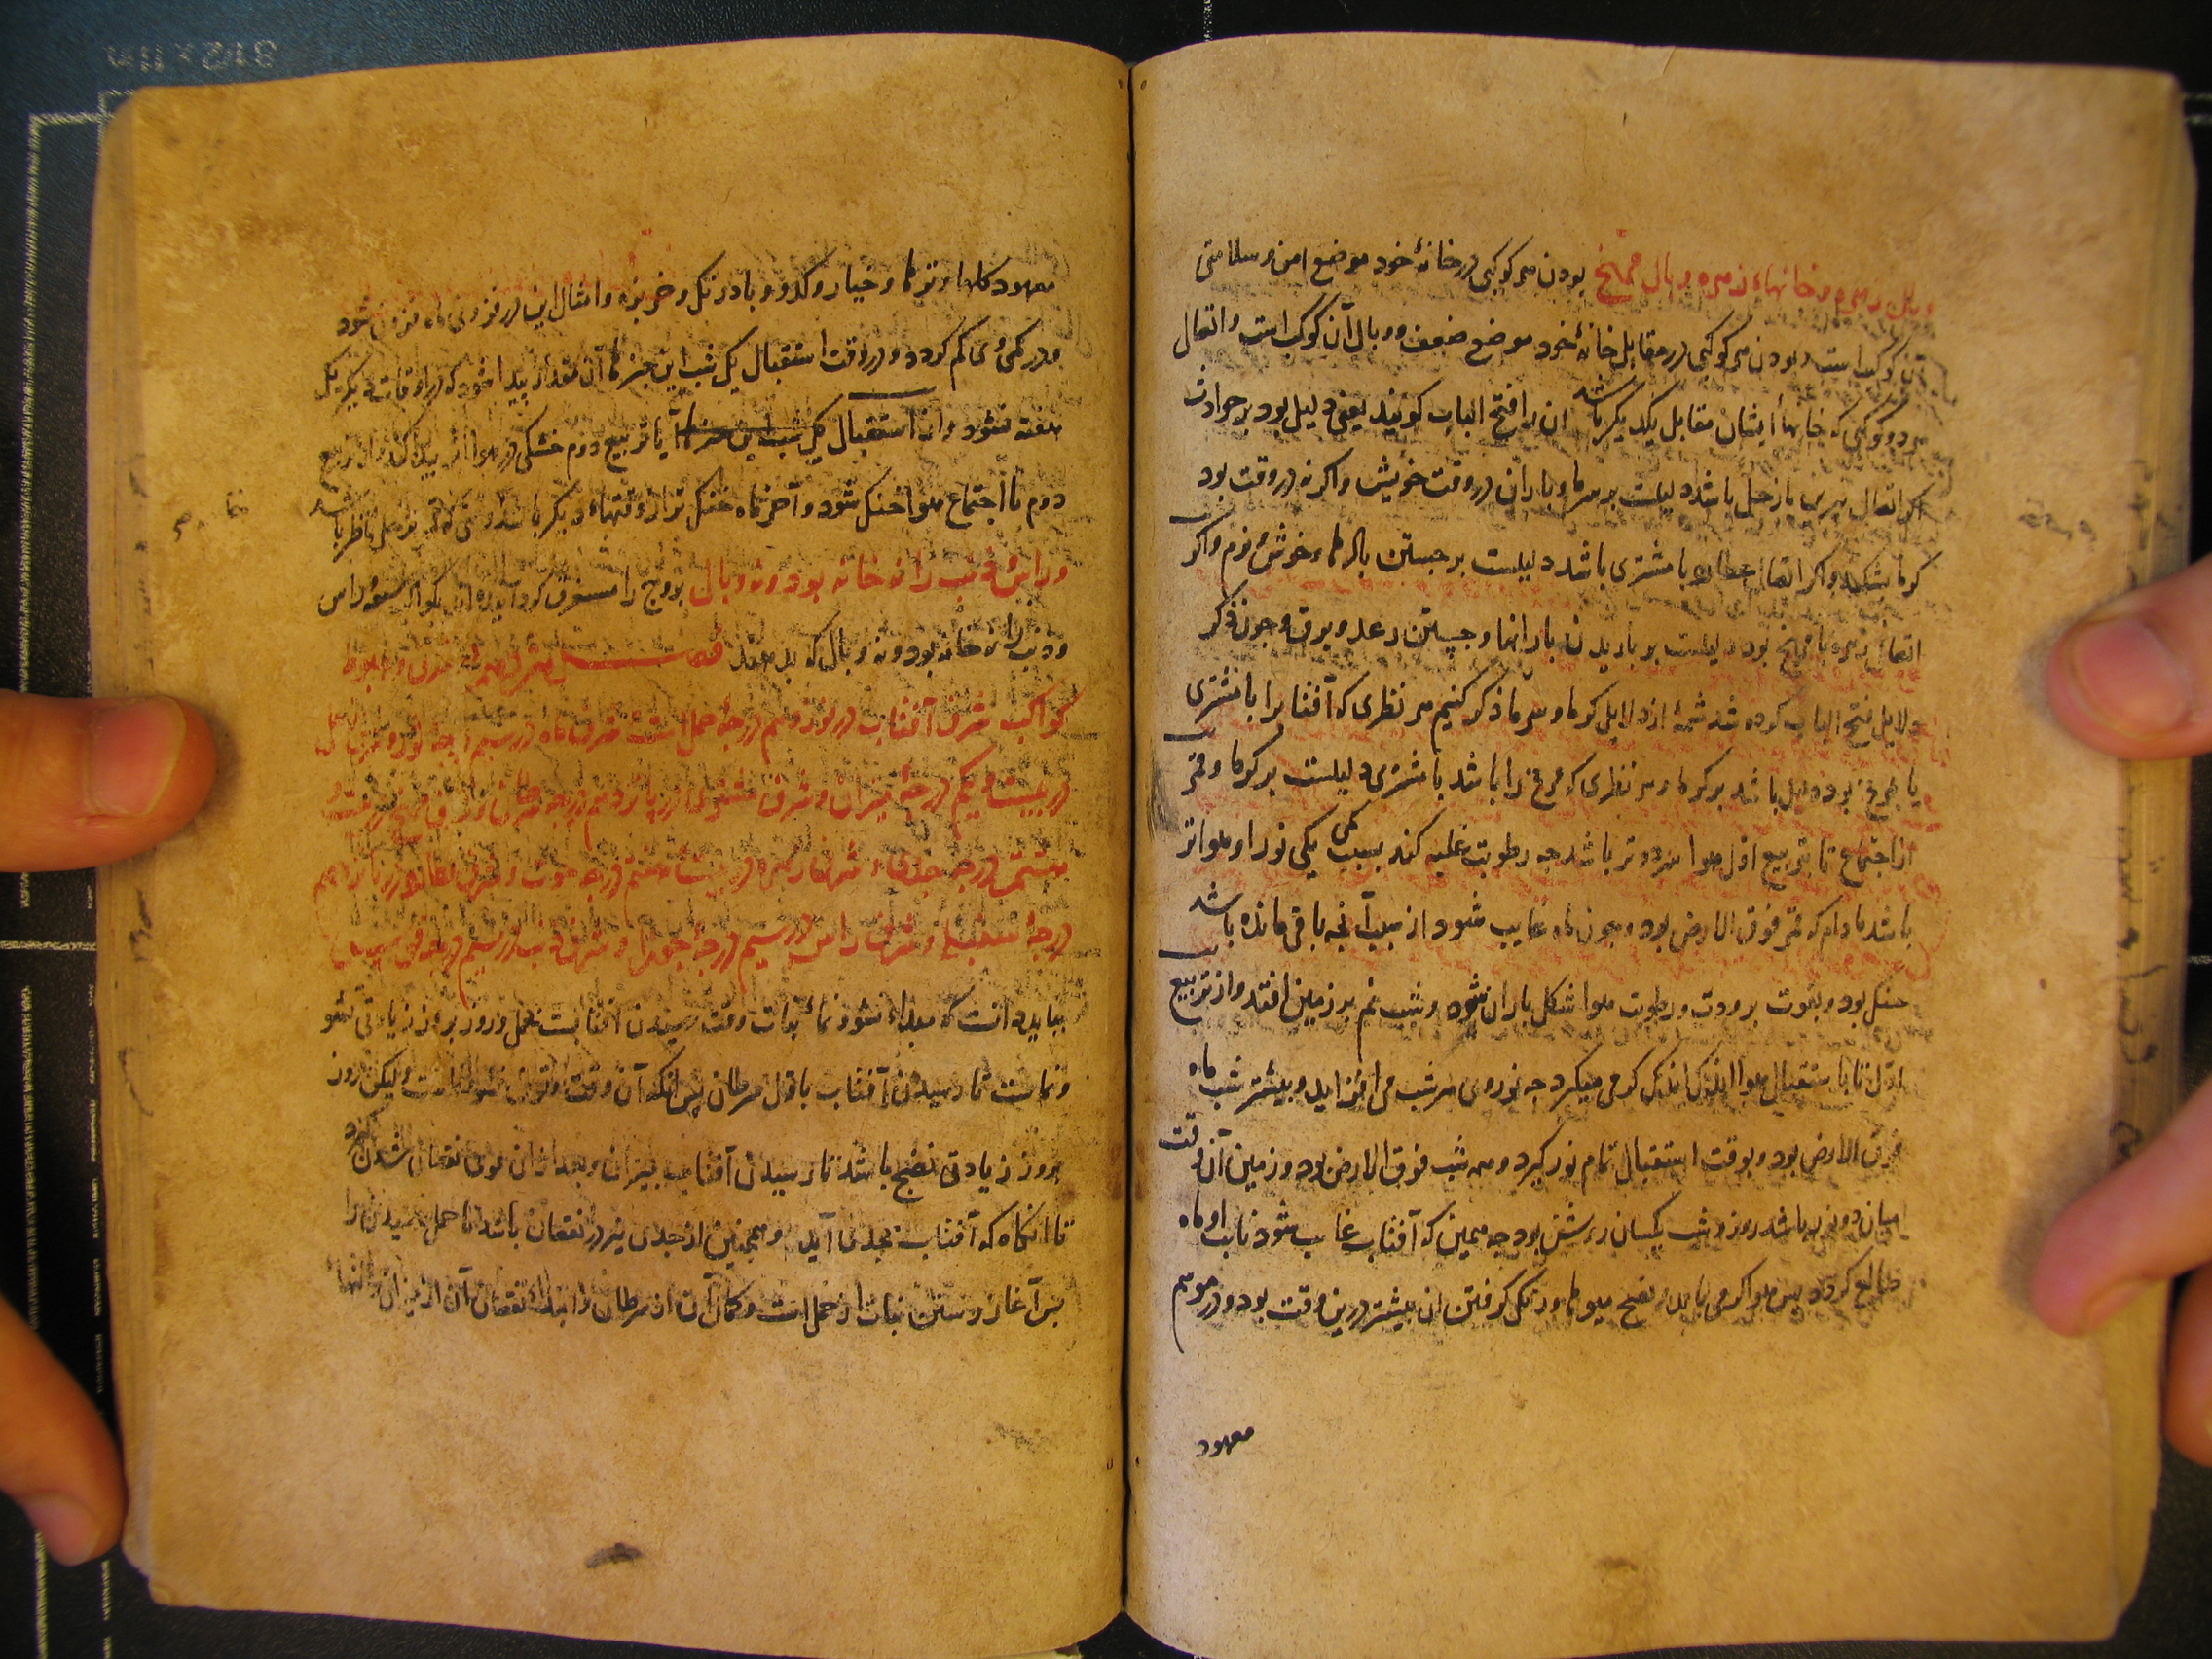 وبال زهره و خانهاء زهره وبال مریخ بودن هر کوکبی در خانهٔ خود موضع امن و سلامتی
آن کوکب است و بودن هر کوکبی در مقابل خانهٔ خود موضع ضعف و وبال آن کوکب است و اتصال
هر دو کوکبی که خانهاٴ ایشان مقابل یکدیگر باشد ان را فتح الباب کویند یعنی دلیل بود بر حوادث
اکر اتصال نیرین با زحل باشد دلیلست بر سرما و باران در وقت خویش و اکر نه در وقت بود
کرما بشکند و اکر اتصال عطارد با مشتری باشد دلیلست بر جستن بادها و خوش و نرم و اکر
اتصال زهره با مریخ بود دلیلست بر باریدن بارانها و جستن رعد و برق و چون ذکر
دلایل فتح الباب کرده شد شمهٔ از دلایل کرما و سرما ذکر کنیم هر نظری که آفتاب را با مشتری
یا مریخ بود دلیل باشد بر کرما و هر نظری که مریخ را باشد با مشتری دلیلست بر کرما و قمر
از اجتماع تا بتربیع اول هوا سرد و تر باشد چه رطوبت غلبه کند بسبب کمی نور او هوا تر
باشد مادام که قمر فوق الارض بود و چون ماه غایب شود از سبب آنچه باقی مانده باشد
خنک بود و بقوت برودت و رطوبت هوا شکل باران شود و شب نم بر زمین افتد و از تربیع
اول تا باستقبال هوا اندک اندک کرمی میکرد چه نور وی هر شب می افزاید و بیشتر شب ماه
فوق الارض بود و بوقت استقبال تمام نور کیرد و همه شب فوق الارض بود و زمین آن وقت
میان دو نور باشد روز و شب یکسان روشن بود چه همین که آفتاب غایب شود نایب او ماه
طالع کردد پس هوا کرمی یابد و نضج میوها و رنک کرفتن ان بیشتر درین وقت بود و در موسم
معهود
معهود کلها و ترها و خیار و کدو و بادرنک و خربزه و امثال این در فزونی ماه فزون شود
و در کمی کم کردد و در وقت استقبال یک شب این چیزها آن مقدار پیدا شود که در اوقات دیکر یک
هفته نشود و از استقبال یک شب این چیزها تا تربیع دوم خشکی در هوا اثر پیدا کند و از تربیع
دوم تا اجتماع هوا خنک شود و آخر ماه خنک تر از وقتهاء دیکر باشد ناظر باشد
و راس و ذنب را نه خانه بود و نه وبال بروج را کرده راس
و ذنب را نه خانه بود و نه وبال که بدهند شرف
کواکب شرف آفتاب در نوزدهم درجهٔ حمل است شرف ماه در سیم درجه ثور و شرف زحل
در بیست و یکم درجهٔ میزان و شرف مشتری در پانزدهم درجه سرطان و شرف مریخ در بیست و
هشتم درجه جدی و شرف زهره در بیست و هفتم درجه حوت و شرف عطارد در پانزدهم
درجهٔ سنبله و شرف راس در سیم درجهٔ جوزا و شرف ذنب در سیم درجه قوس
بباید دانست که مبداء نشو و نماء نبات وقت رسیدن آفتابست بحمل و روز بروز زیادتی نشو
و نماست تا رسیدن آفتاب باول سرطان پس انکه آن وقت و لیکن روز
بروز زیادتی نضج باشد تا رسیدن آفتاب بمیزان و بعد از ان نقصان شدن کیرد
تا انکاه که آفتاب بجدی آید و همچنین از جدی در نقصان باشد تا حمل رسیدن
پس آغاز رستن نبات از حمل است و کمال آن از سرطان و ابتداء نقصان آن از میزان